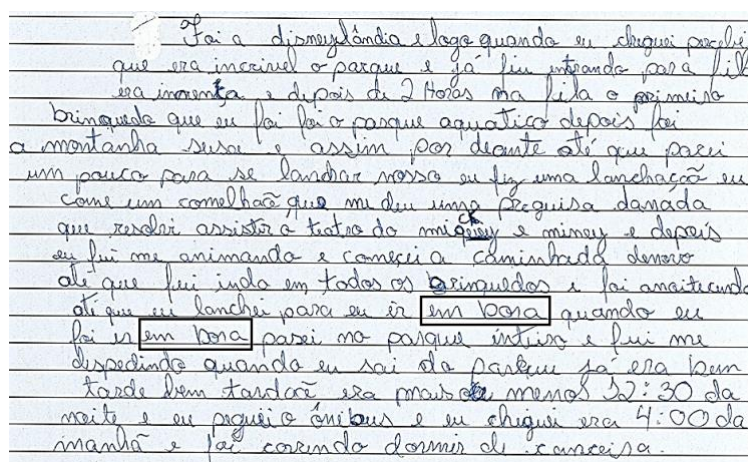 Foi a disneylândia e logo quando eu cheguei percebi
que era incrivel o parque e já fiu entrando para fila
era imensa e depois de 2 Horas na fila o primeiro
brinquedo que eu foi foi o parque aquatico depois foi
a montanha susa e assim por deante até que parei
um pouco para se lanchar nossa eu fiz uma lanchaçaõ eu
come um comelhaõ que me deu uma preguisa danada
que resolvi assistir o teatro do mickey e miney e depois
eu fui me animando e comecei a caminhada denovo
até que fui indo em todos os brinquedos e foi anoitecendo
até que eu lanchei para eu ir em bora quando eu
foi ir em bora pasei no parque inteiro e fui me
dispedindo quando eu sai do parque já era bem
tarde bem tardaõ era mais ou menos 12:30 da
noite e eu peguei o ônibus e eu cheguei era 4:00 da
manhã e foi corendo dormir de canceisa.